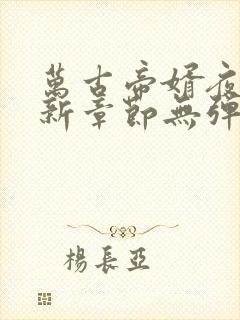 萬古帝婿夜
新章節無彈
楊長亞